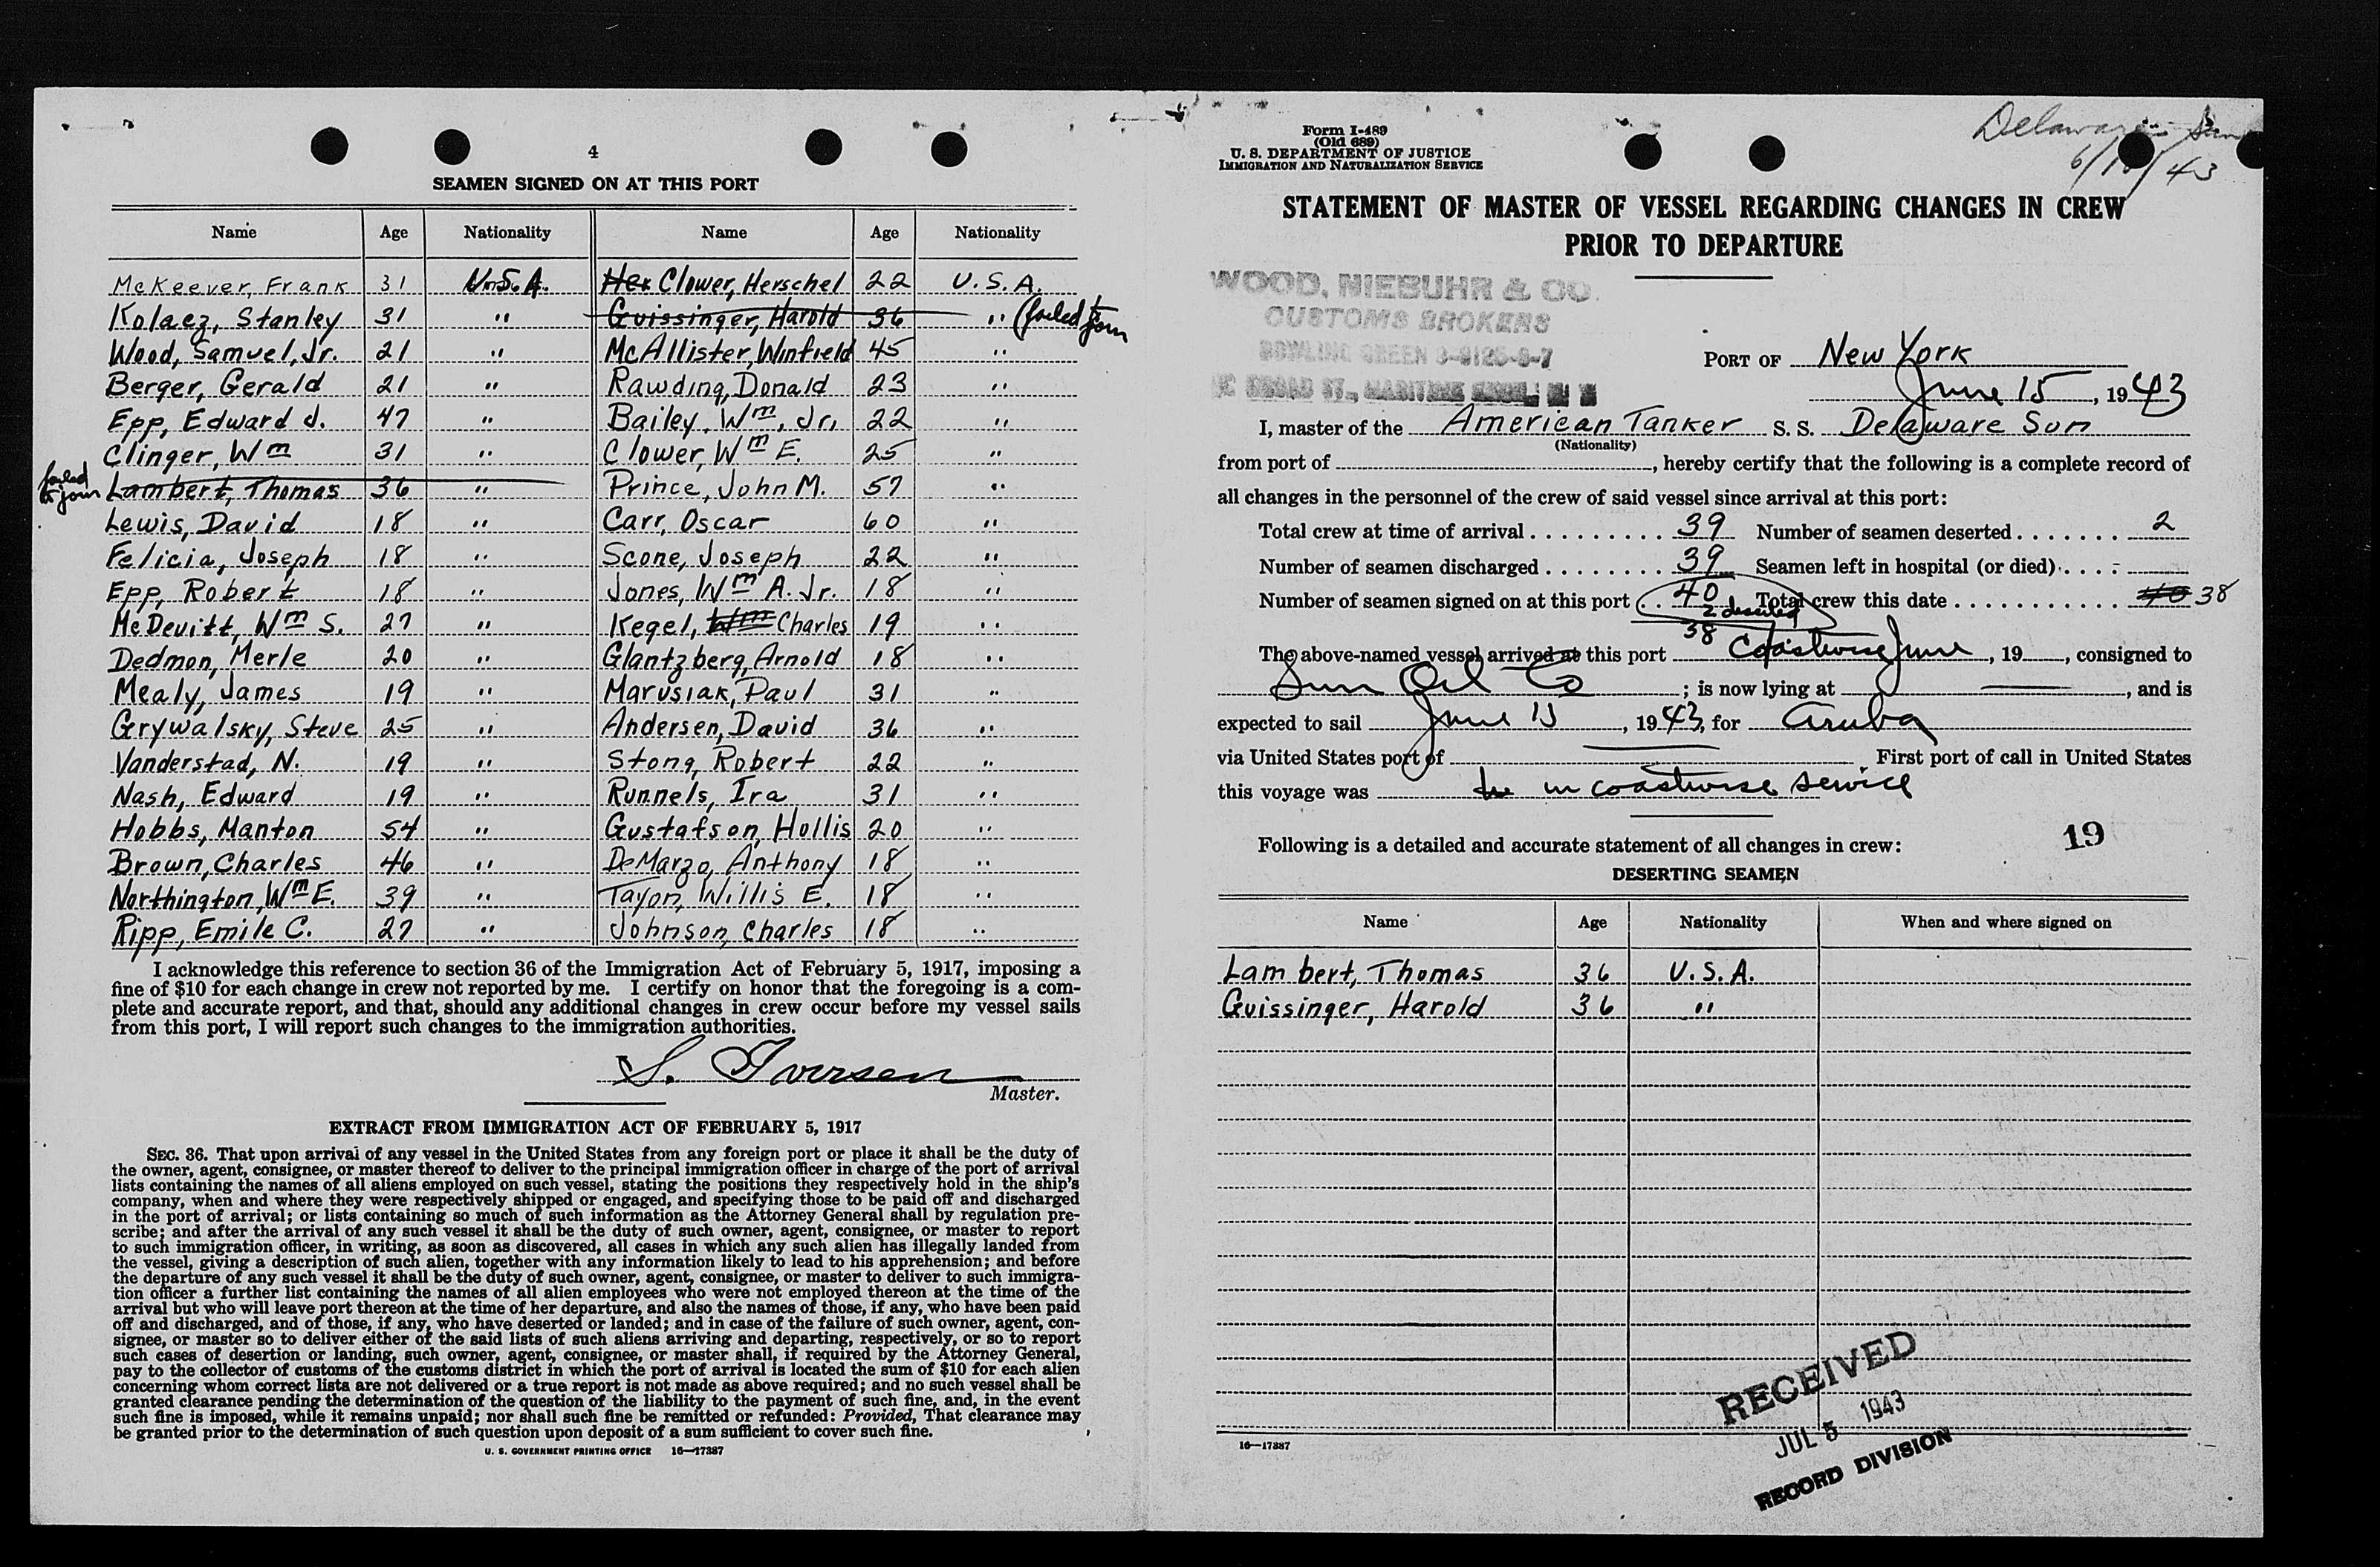 4
SEAMEN SIGNED ON AT THIS PORT
Name Age Nationality Name Age Nationality
McKeever, Frank 31 U.S.A. Her Clower, Herschel 22 U.S.A.
Kolacz, Stanley 31 " Guissinger, Harold 36 " (failed to join
Wood, Samuel, Jr. 21 " McAllister, Winfield 45 "
Berger, Gerald 21 " Rawding, Donald 23 "
Epp, Edward J. 47 " Bailey, Wm, Jr. 22 "
Clinger, Wm 31 " Clower, Wm E. 25 "
failed to join Lambert, Thomas 36 " Prince, John M. 57 "
Lewis, David 18 " Carr, Oscar 60 "
Felicia, Joseph 18 " Scone, Joseph 22 "
Epp, Robert 18 " Jones, Wm A. Jr. 18 "
McDevitt, Wm S. 27 " Kegel, Wm Charles 19 "
Dedmon, Merle 20 " Glantzberg, Arnold 18 "
Mealy, James 19 " Marusiak, Paul 31 "
Grywalsky, Steve 25 " Andersen, David 36 "
Vanderstad, N. 19 " Stong, Robert 22 "
Nash, Edward 19 " Runnels, Ira 31 "
Hobbs, Manton 54 " Gustafson, Hollis 20 "
Brown, Charles 46 " DeMarzo, Anthony 18 "
Northington, Wm E. 39 " Tayon, Willis E. 18 "
Ripp, Emile C. 27 " Johnson, Charles 18 "
I acknowledge this reference to section 36 of the Immigration Act of February 5, 1917, imposing a
fine of $10 for each change in crew not reported by me. I certify on honor that the foregoing is a com-
plete and accurate report, and that, should any additional changes in crew occur before my vessel sails
from this port, I will report such changes to the immigration authorities.
S. Iversen
Master.
EXTRACT FROM IMMIGRATION ACT OF FEBRUARY 5, 1917
SEC. 36. That upon arrival of any vessel in the United States from any foreign port or place it shall be the duty of
the owner, agent, consignee, or master thereof to deliver to the principal immigration officer in charge of the port of arrival
lists containing the names of all aliens employed on such vessel, stating the positions they respectively hold in the ship's
company, when and where they were respectively shipped or engaged, and specifying those to be paid off and discharged
in the port of arrival; or lists containing so much of such information as the Attorney General shall by regulation pre-
scribe; and after the arrival of any such vessel it shall be the duty of such owner, agent, consignee, or master to report
to such immigration officer, in writing, as soon as discovered, all cases in which any such alien has illegally landed from
the vessel, giving a description of such alien, together with any information likely to lead to his apprehension; and before
the departure of any such vessel it shall be the duty of such owner, agent, consignee, or master to deliver to such immigra-
tion officer a further list containing the names of all alien employees who were not employed thereon at the time of the
arrival but who will leave port thereon at the time of her departure, and also the names of those, if any, who have been paid
off and discharged, and of those, if any, who have deserted or landed; and in case of the failure of such owner, agent, con-
signee, or master so to deliver either of the said lists of such aliens arriving and departing, respectively, or so to report
such cases of desertion or landing, such owner, agent, consignee, or master shall, if required by the Attorney General,
pay to the collector of customs of the customs district in which the port of arrival is located the sum of $10 for each alien
concerning whom correct lists are not delivered or a true report is not made as above required; and no such vessel shall be
granted clearance pending the determination of the question of the liability to the payment of such fine, and, in the event
such fine is imposed, while it remains unpaid; nor shall such fine be remitted or refunded: Provided, That clearance may
be granted prior to the determination of such question upon deposit of a sum sufficient to cover such fine.
U. S. GOVERNMENT PRINTING OFFICE 16—17387
Form I-489
(Old 689)
U. S. DEPARTMENT OF JUSTICE
IMMIGRATION AND NATURALIZATION SERVICE
Delaware Sun
6/15/43
STATEMENT OF MASTER OF VESSEL REGARDING CHANGES IN CREW
PRIOR TO DEPARTURE
WOOD, NIEBUHR & CO.
CUSTOMS BROKERS
BOWLING GREEN 9-8125-6-7
BROAD ST., MARITIME
PORT OF New York
June 15, 1943
I, master of the American Tanker S. S. Delaware Sun
(Nationality)
from port of , hereby certify that the following is a complete record of
all changes in the personnel of the crew of said vessel since arrival at this port:
Total crew at time of arrival 39 Number of seamen deserted 2
Number of seamen discharged 39 Seamen left in hospital (or died) -
Number of seamen signed on at this port 40 Total crew this date 40 38
2 deserted
38
The above-named vessel arrived at this port Coastwise June, 19 , consigned to
Sun Oil Co ; is now lying at , and is
expected to sail June 15, 1943, for Aruba
via United States port of . First port of call in United States
this voyage was in coastwise service
Following is a detailed and accurate statement of all changes in crew: 19
DESERTING SEAMEN
Name Age Nationality When and where signed on
Lambert, Thomas 36 U.S.A.
Guissinger, Harold 36 "
RECEIVED
JUL 5 1943
RECORD DIVISION
16—17387